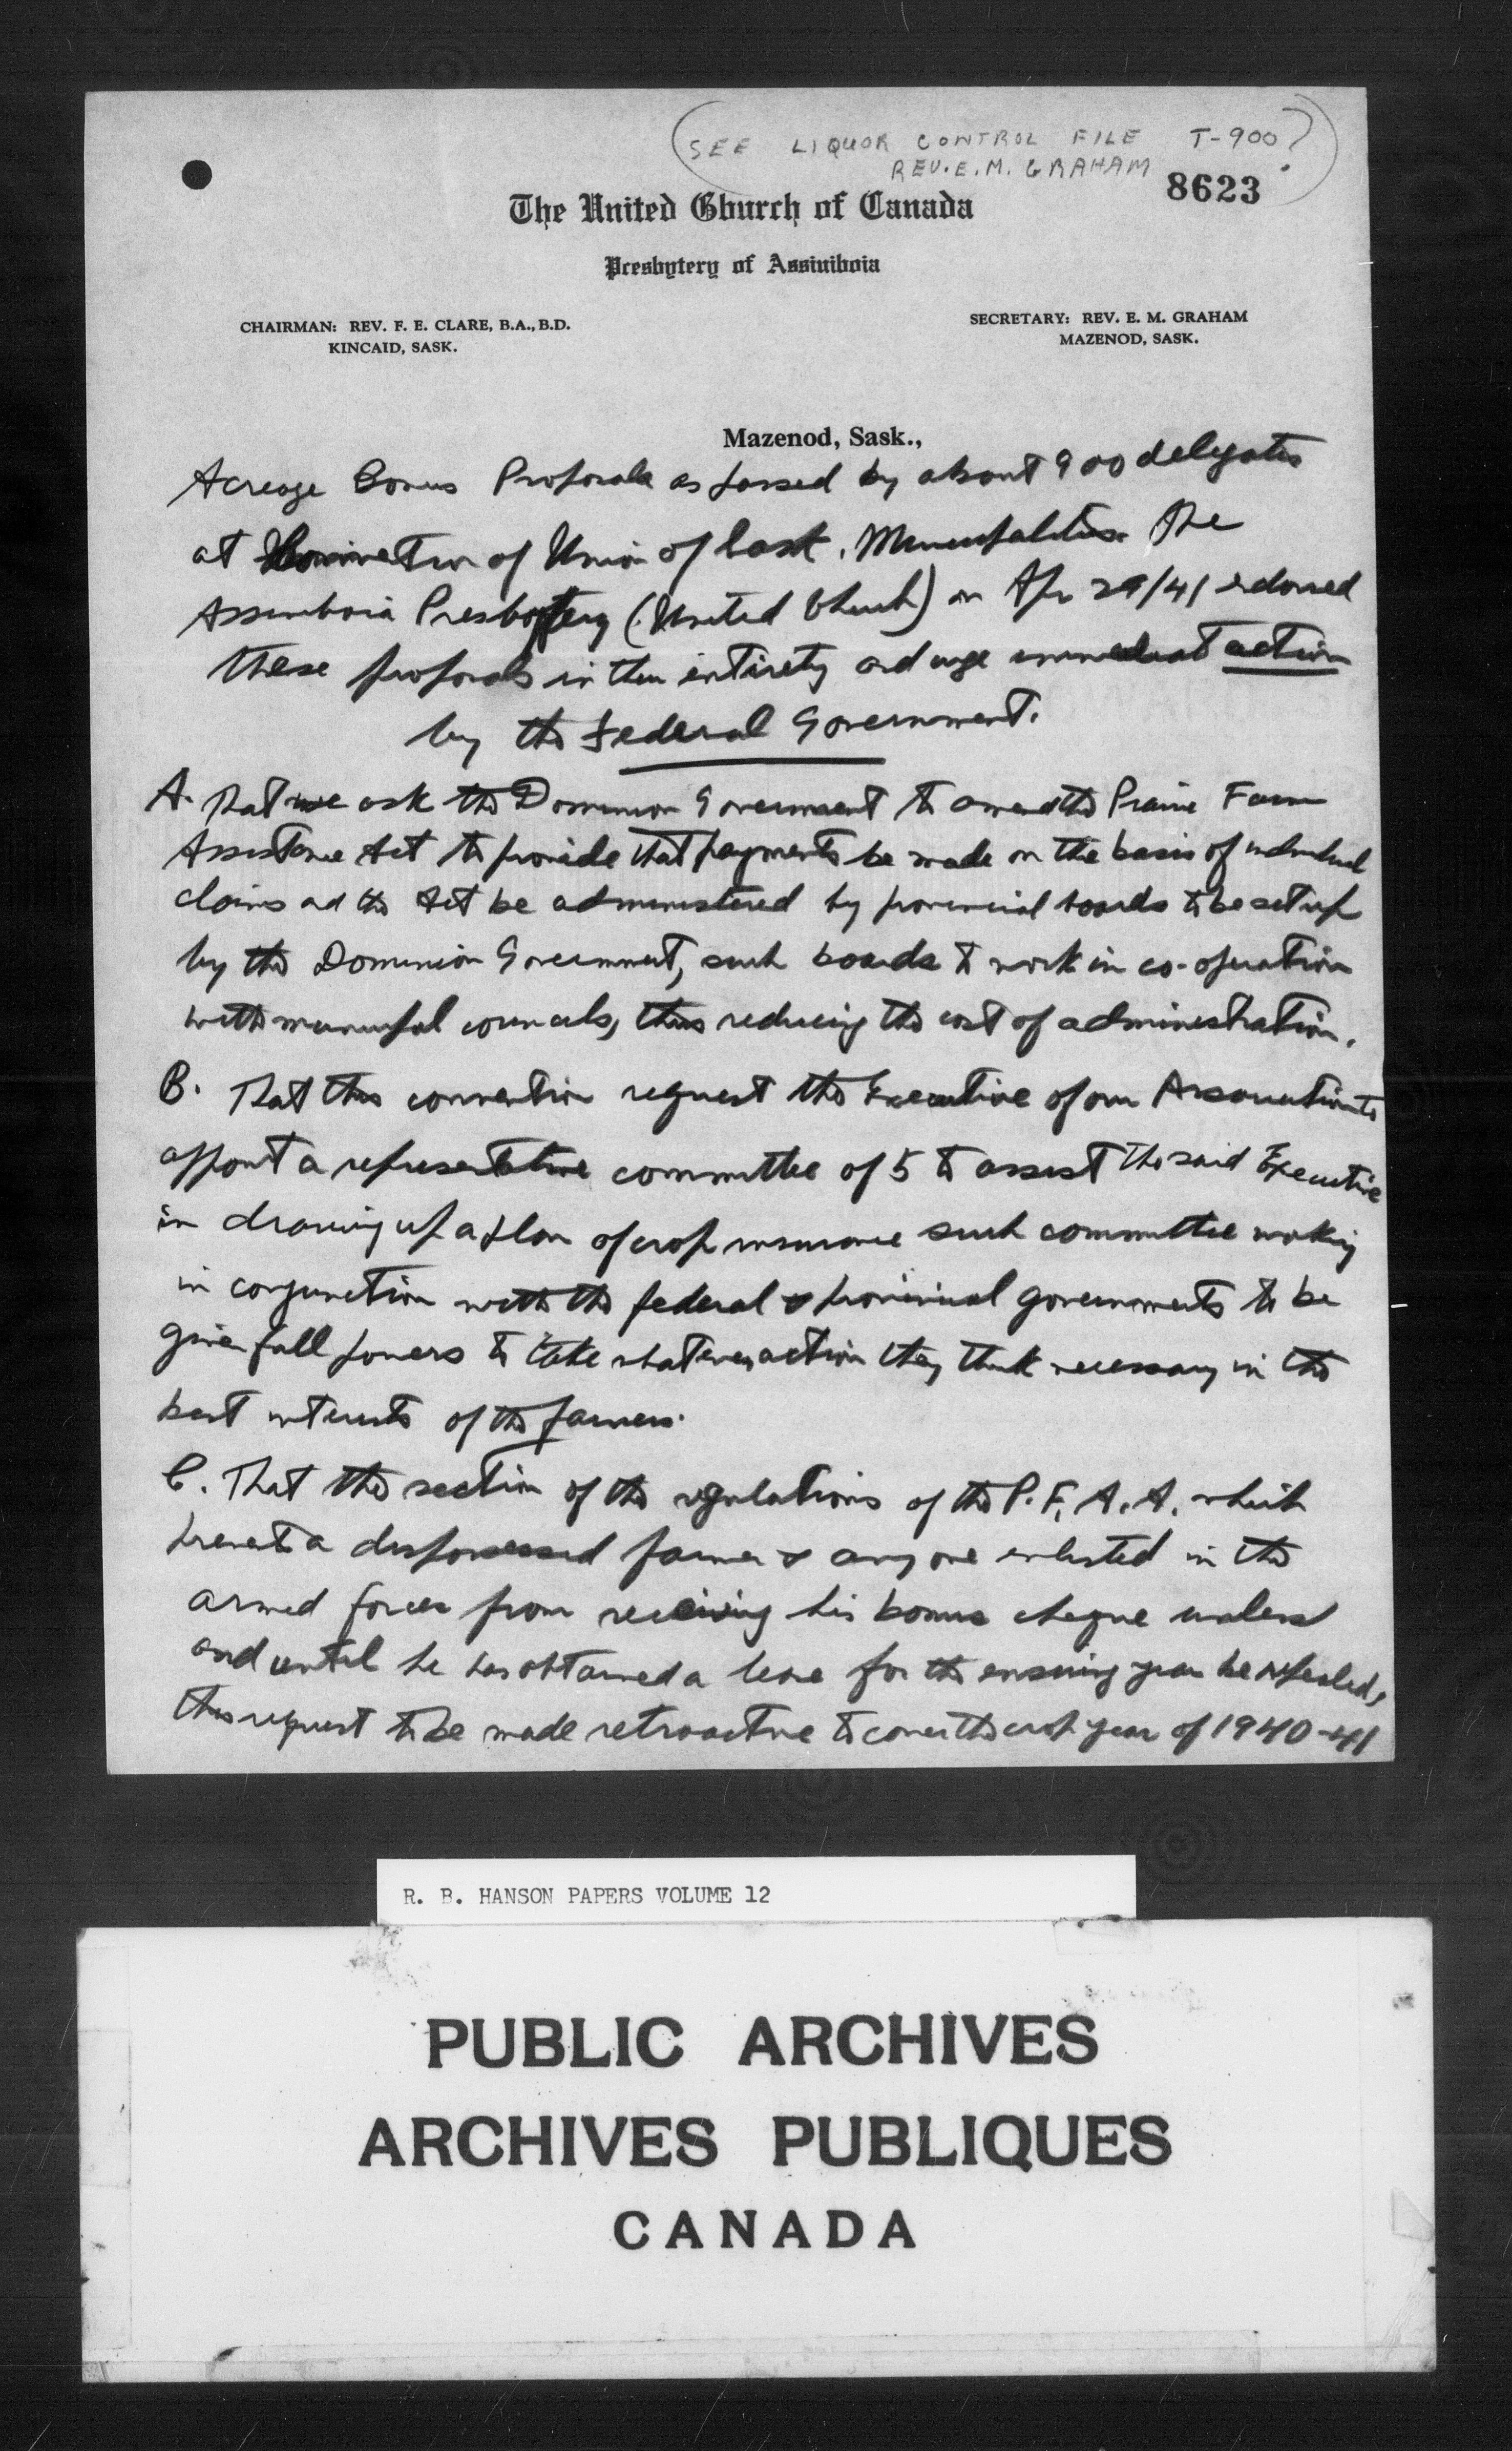 (SEE LIQUOR CONTROL FILE T-900?)
REV. E. M. GRAHAM
8623
The United Church of Canada
Presbytery of Assiniboia
CHAIRMAN: REV. F. E. CLARE, B.A., B.D.
KINCAID, SASK.
SECRETARY: REV. E. M. GRAHAM
MAZENOD, SASK.
Mazenod, Sask.,
Acreage Bonus Proposals as passed by about 900 delegates
at Convention of Union of Sask. Municipalities. The
Assiniboia Presbytery (United Church) on Apr 29/41 endorsed
these proposals in their entirety and urge immediate action
by the Federal Government.
A. That we ask the Dominion Government to amend the Prairie Farm
Assistance Act to provide that payments be made on the basis of individual
claims and the Act be administered by provincial boards to be set up
by the Dominion Government, such boards to work in co-operation
with municipal councils, thus reducing the cost of administration.
B. That this convention request the Executive of our Association to
appoint a representative committee of 5 to assist the said Executive
in drawing up a plan of crop insurance such committee working
in conjunction with the federal & provincial governments to be
given full powers to take whatever action they think necessary in the
best interests of the farmers.
C. That the section of the regulations of the P. F. A. A. which
prevents a dispossessed farmer & any one enlisted in the
armed forces from receiving his bonus cheque unless
and until he has obtained a lease for the ensuing year be repealed,
this request to be made retroactive to cover the crop year of 1940-41
R. B. HANSON PAPERS VOLUME 12
PUBLIC ARCHIVES
ARCHIVES PUBLIQUES
CANADA